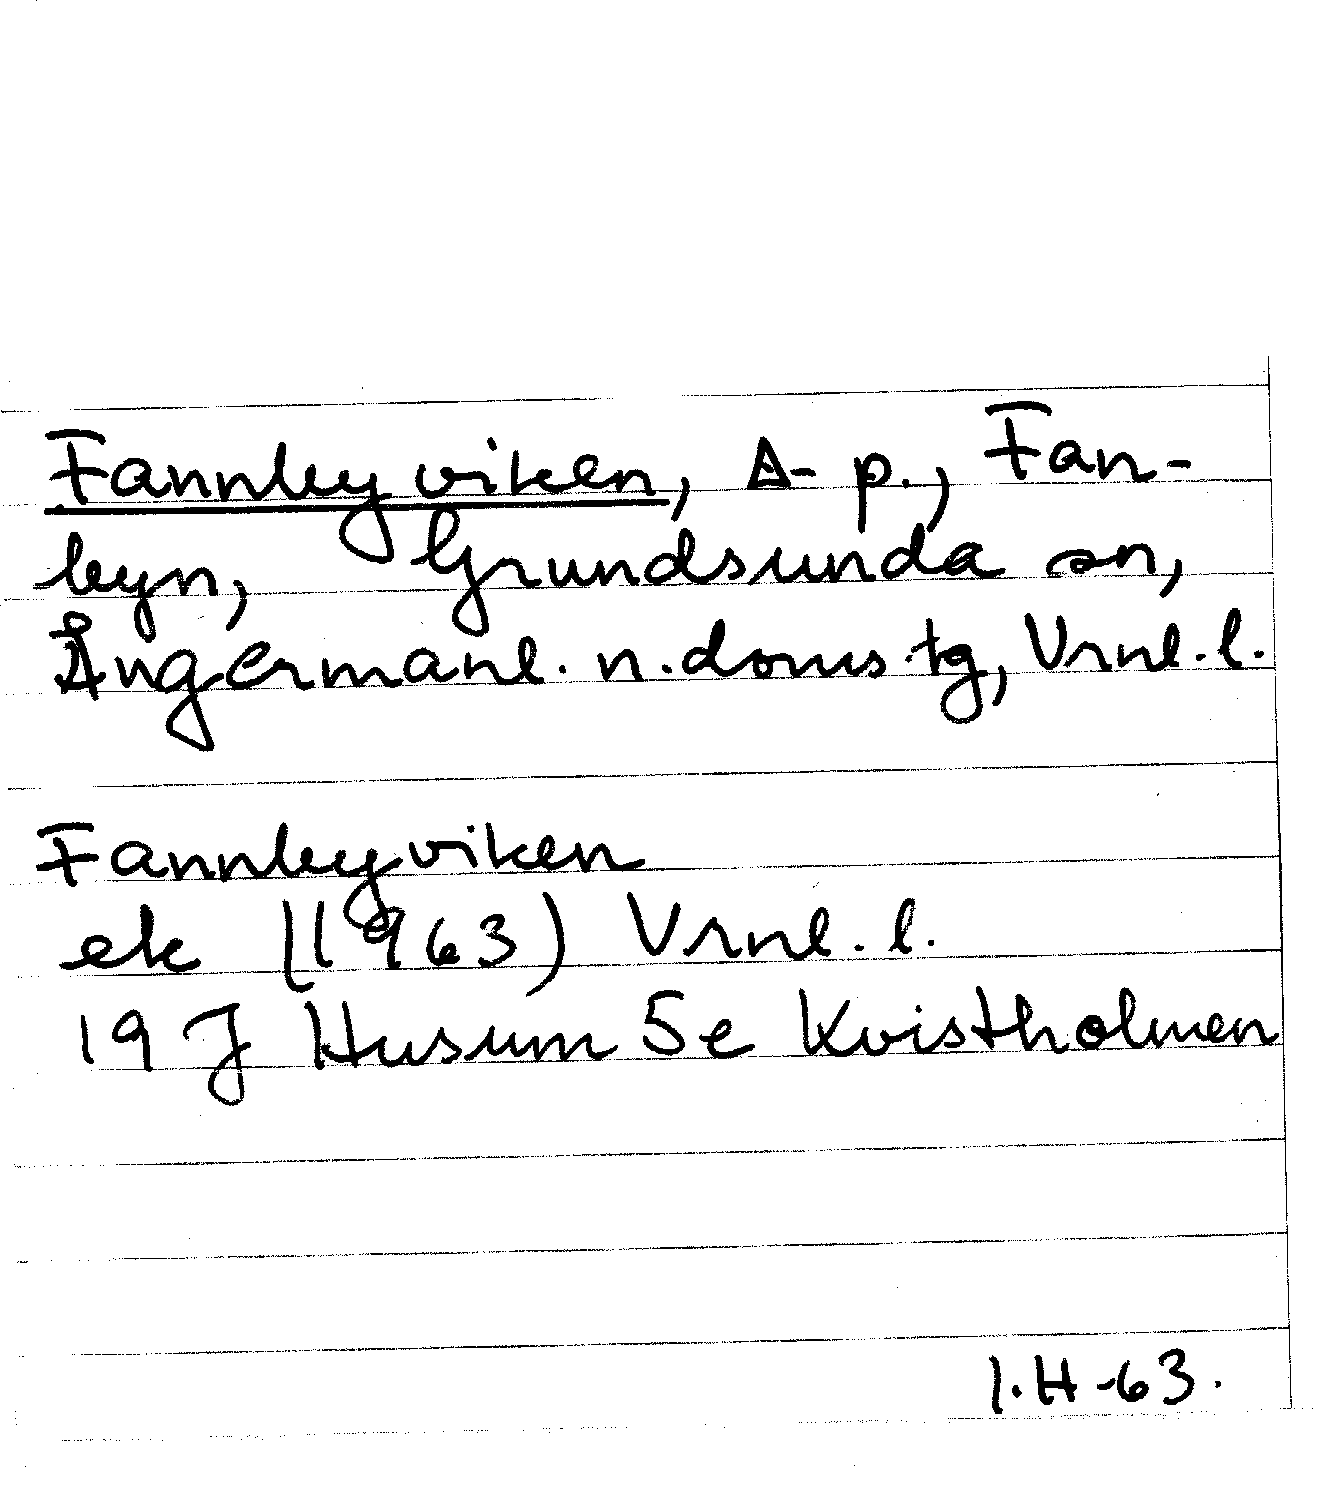 Fannbyviken, A-p., Fan-
byn, Grundsunda sn,
Ångermanl. n. doms.tg, Vrnl. l.
Fannbyviken
ek (1963) Vrnl. l.
19 J Husum 5e Kvistholmen
I.H -63.